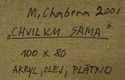 M, Chabera 2001
"CHVILKU SAMA"
100 x 80
AKRYL, OLEJ, PLÁTNO